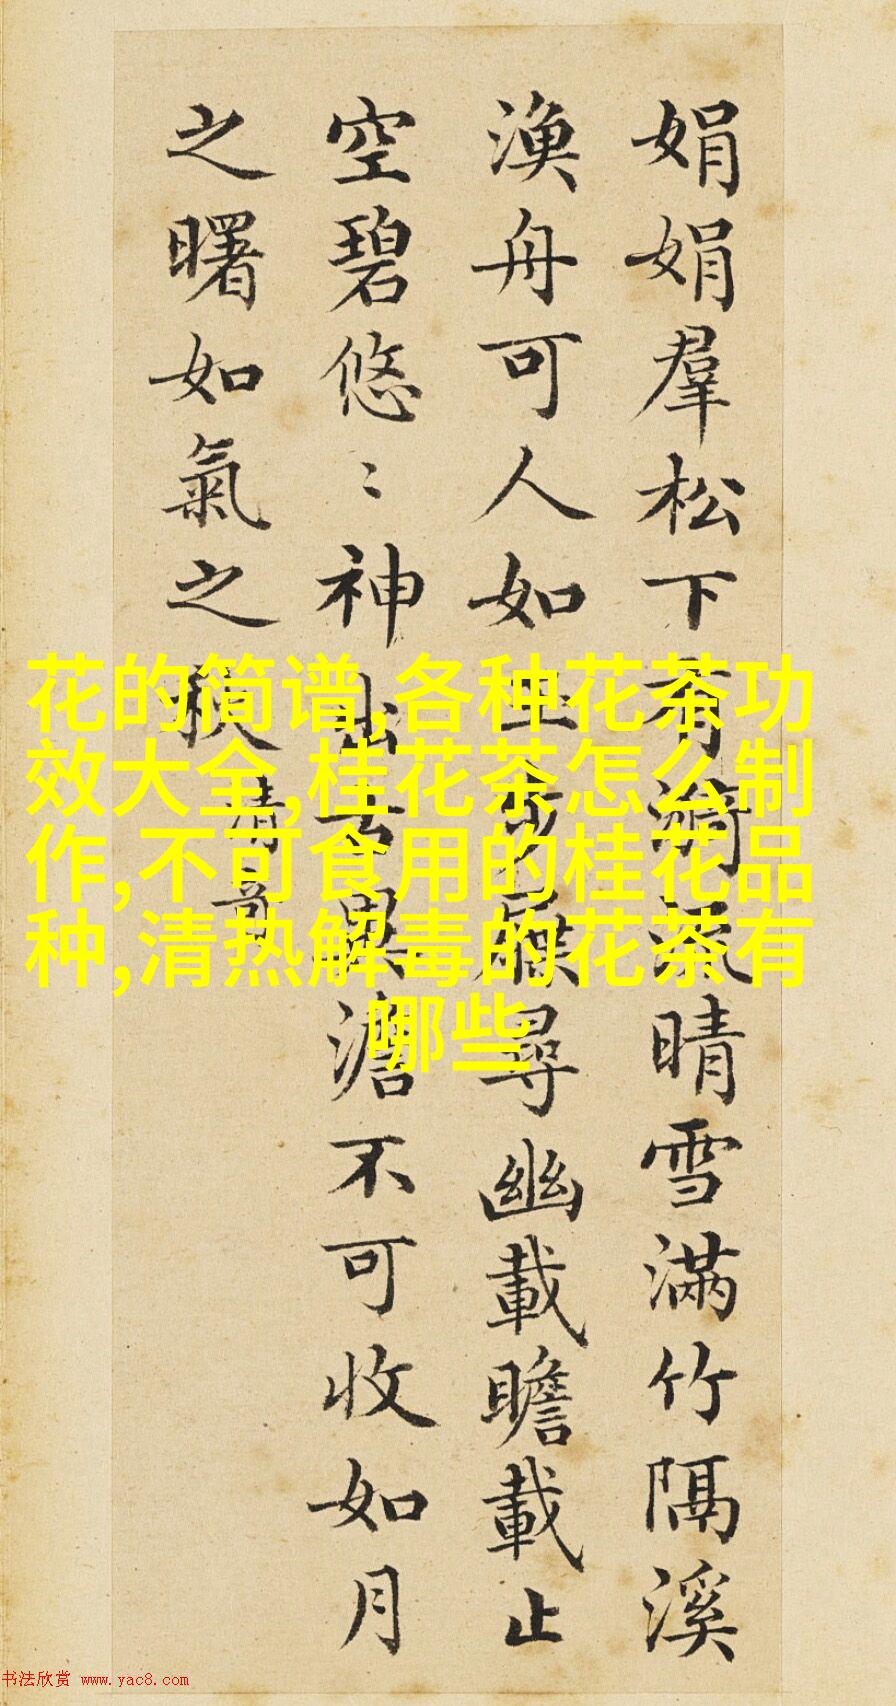 娟娟羣松下有漪流晴雪滿竹隔溪
漁舟可人如玉步屧尋幽載瞻載止
空碧悠〻神出古異澹不可收如月
之曙如氣之秋
清奇
花的简谱,各种花茶功
效大全,桂花茶怎么制
作,不可食用的桂花品
种,清热解毒的花茶有
哪些
书法欣赏 www.yac8.com